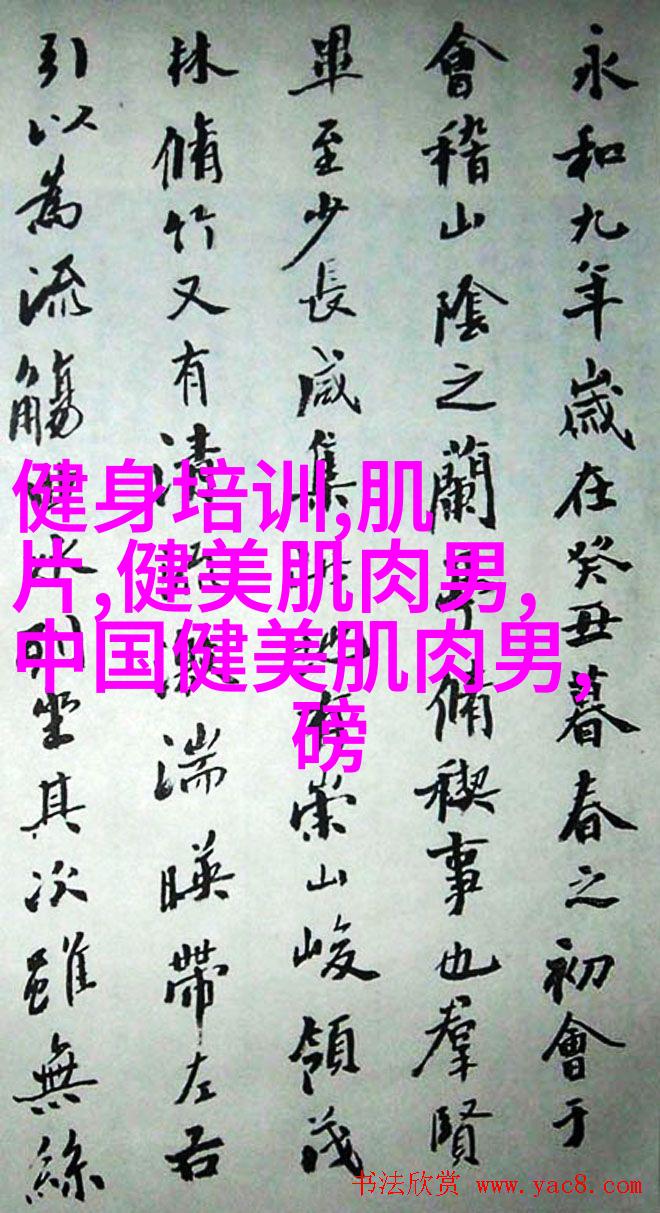 永和九年歲在癸丑暮春之初會于
會稽山陰之蘭亭脩稧事也羣賢
畢至少長咸集此地有崇山峻領茂
林脩竹又有清流激湍暎帶左右
引以為流觴曲水列坐其次雖無絲
健身培训,肌
片,健美肌肉男,
中国健美肌肉男,
磅
书法欣赏 www.yac8.com